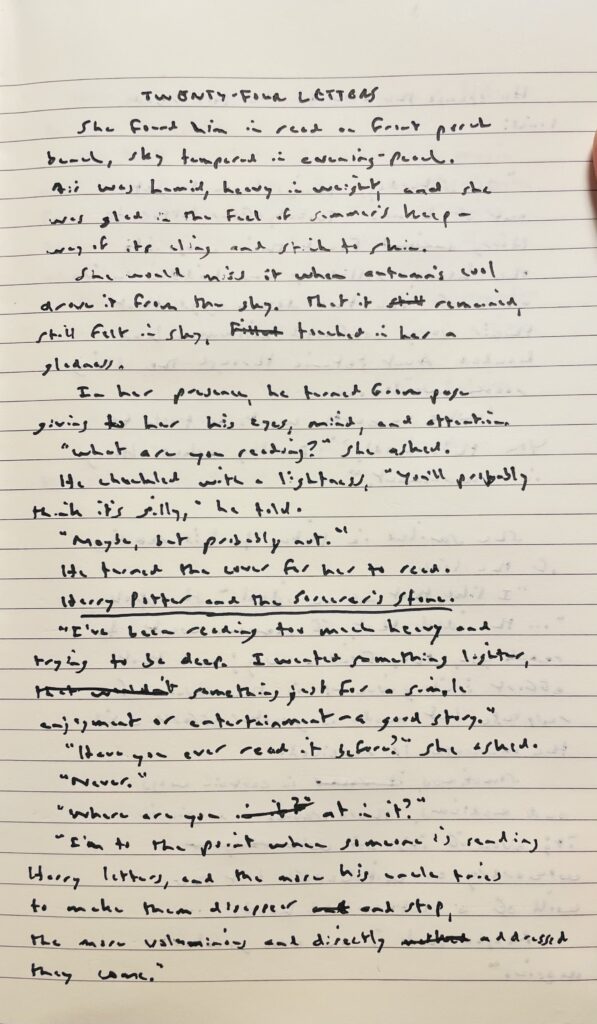 TWENTY-FOUR LETTERS
She found him in read on front porch
bench, sky tempered in evening-peach.
Air was humid, heavy in weight, and she
was glad in the feel of summer's keep -
way of its cling and stick to skin.
She would miss it when autumn's cool
drove it from the sky. That it still remained,
still felt in sky, touched in her a
gladness.
In her presence, he turned from page
giving to her his eyes, mind, and attention.
"What are you reading?" she asked.
He chuckled with a lightness, "You'll probably
think it's silly," he told.
"Maybe, but probably not."
He turned the cover for her to read.
Harry Potter and the Sorcerer's Stone.
"I've been reading too much heavy and
trying to be deep. I wanted something lighter,
that wouldn't something just for a simple
enjoyment or entertainment - a good story."
"Have you ever read it before?" she asked.
"Never."
"Where are you in it?" at in it?"
"I'm to the point when someone is sending
Harry letters, and the more his uncle tries
to make them disappear and stop,
the more voluminous and directly addressed
they come."